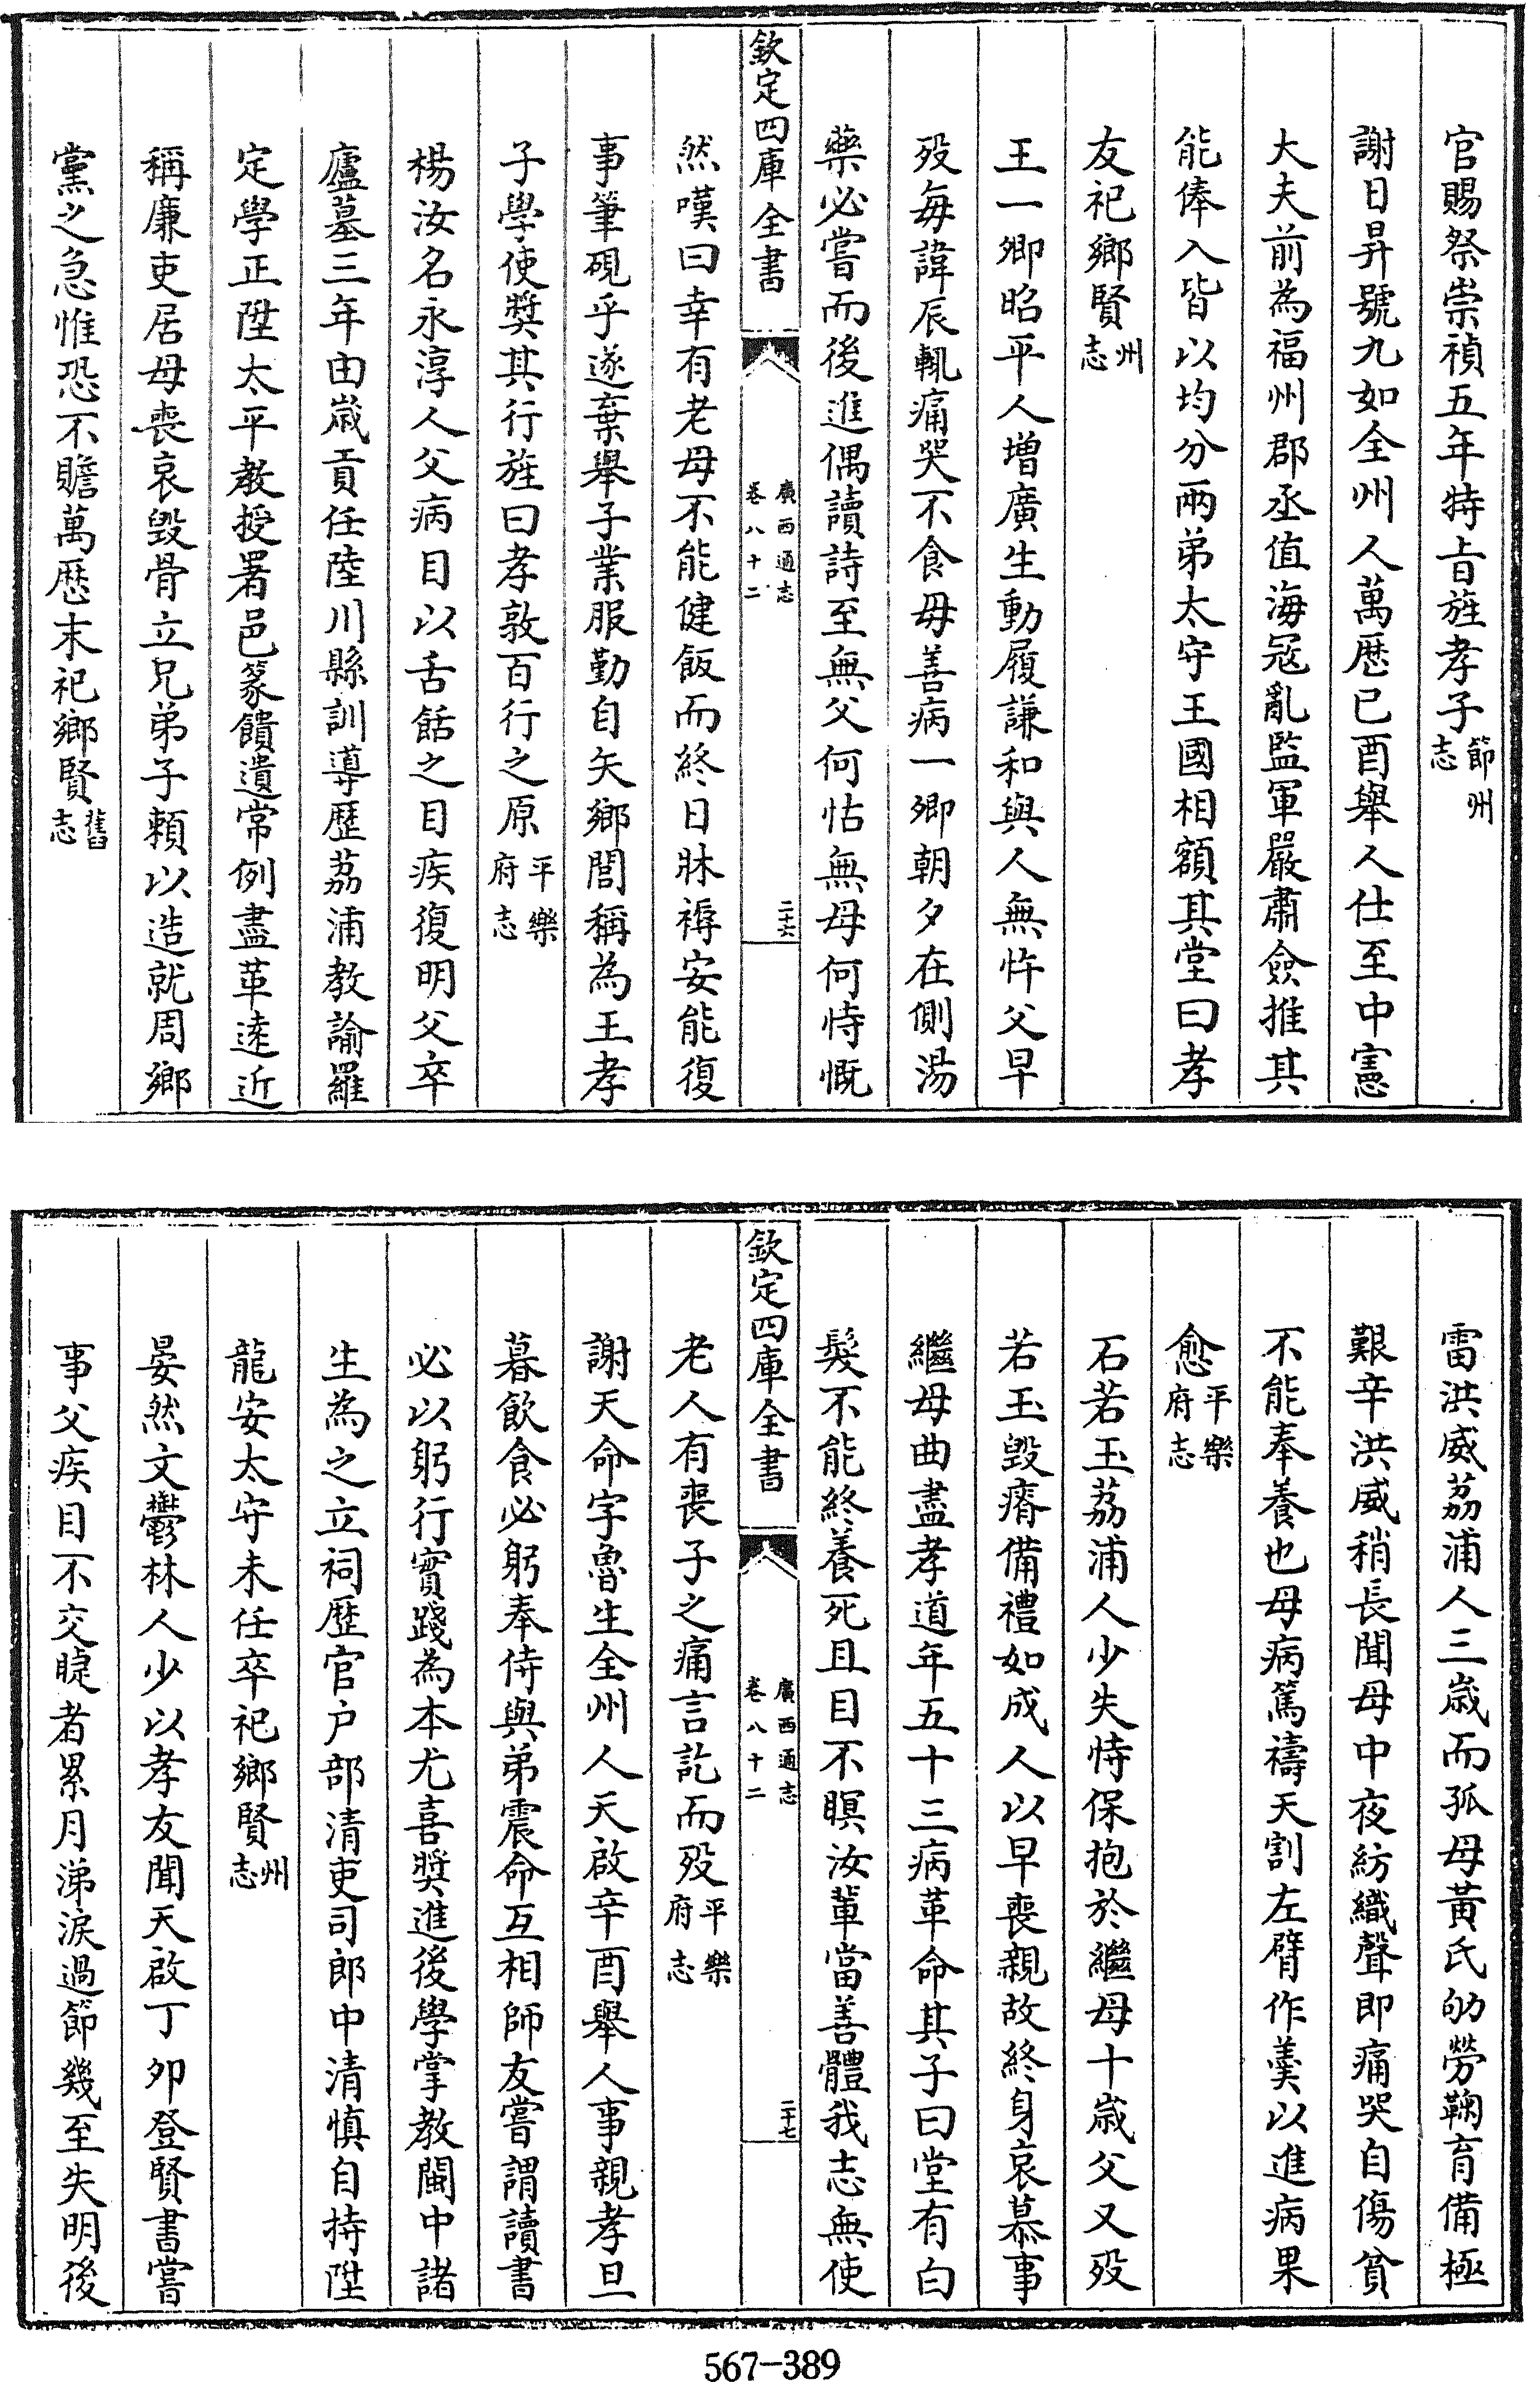 官賜祭崇禎五年特㫖旌孝子節州志
謝日昇號九如全州人萬厯已酉舉人仕至中憲
大夫前為福州郡丞值海冦亂監軍嚴肅僉推其
能俸入皆以均分兩弟太守王國相額其堂曰孝
友祀鄉賢州志
王一卿昭平人增廣生動履謙和與人無忤父早
歿每諱辰輒痛哭不食母善病一卿朝夕在側湯
藥必嘗而後進偶讀詩至無父何怙無母何恃慨
欽定四庫全書
廣西通志
卷八十二
二十六
然嘆曰幸有老母不能健飯而終日牀褥安能復
事筆硯乎遂棄舉子業服勤自矢鄉閭稱為王孝
子學使獎其行旌曰孝敦百行之原平樂府志
楊汝名永淳人父病目以舌餂之目疾復明父卒
廬墓三年由歲貢任陸川縣訓導歷荔浦教諭羅
定學正陞太平教授署邑篆饋遺常例盡革逺近
稱廉吏居母喪哀毀骨立兄弟子賴以造就周鄉
黨之急惟恐不贍萬厯末祀鄉賢舊志
雷洪威荔浦人三歲而孤母黃氏劬勞鞠育備極
艱辛洪威稍長聞母中夜紡織聲即痛哭自傷貧
不能奉養也母病篤禱天割左臂作羹以進病果
愈平樂府志
石若玉荔浦人少失恃保抱於繼母十歲父又歿
若玉毀瘠備禮如成人以早喪親故終身哀慕事
繼母曲盡孝道年五十三病革命其子曰堂有白
髮不能終養死且目不瞑汝輩當善體我志無使
欽定四庫全書
廣西通志
卷八十二
二十七
老人有喪子之痛言訖而歿平樂府志
謝天命字魯生全州人天啟辛酉舉人事親孝旦
暮飲食必躬奉侍與弟震命互相師友嘗謂讀書
必以躬行實踐為本尤喜獎進後學掌教閩中諸
生為之立祠歷官户部清吏司郎中清慎自持陞
龍安太守未任卒祀鄉賢州志
晏然文鬱林人少以孝友聞天啟丁卯登賢書嘗
事父疾目不交睫者累月涕淚過節幾至失明後
567-389